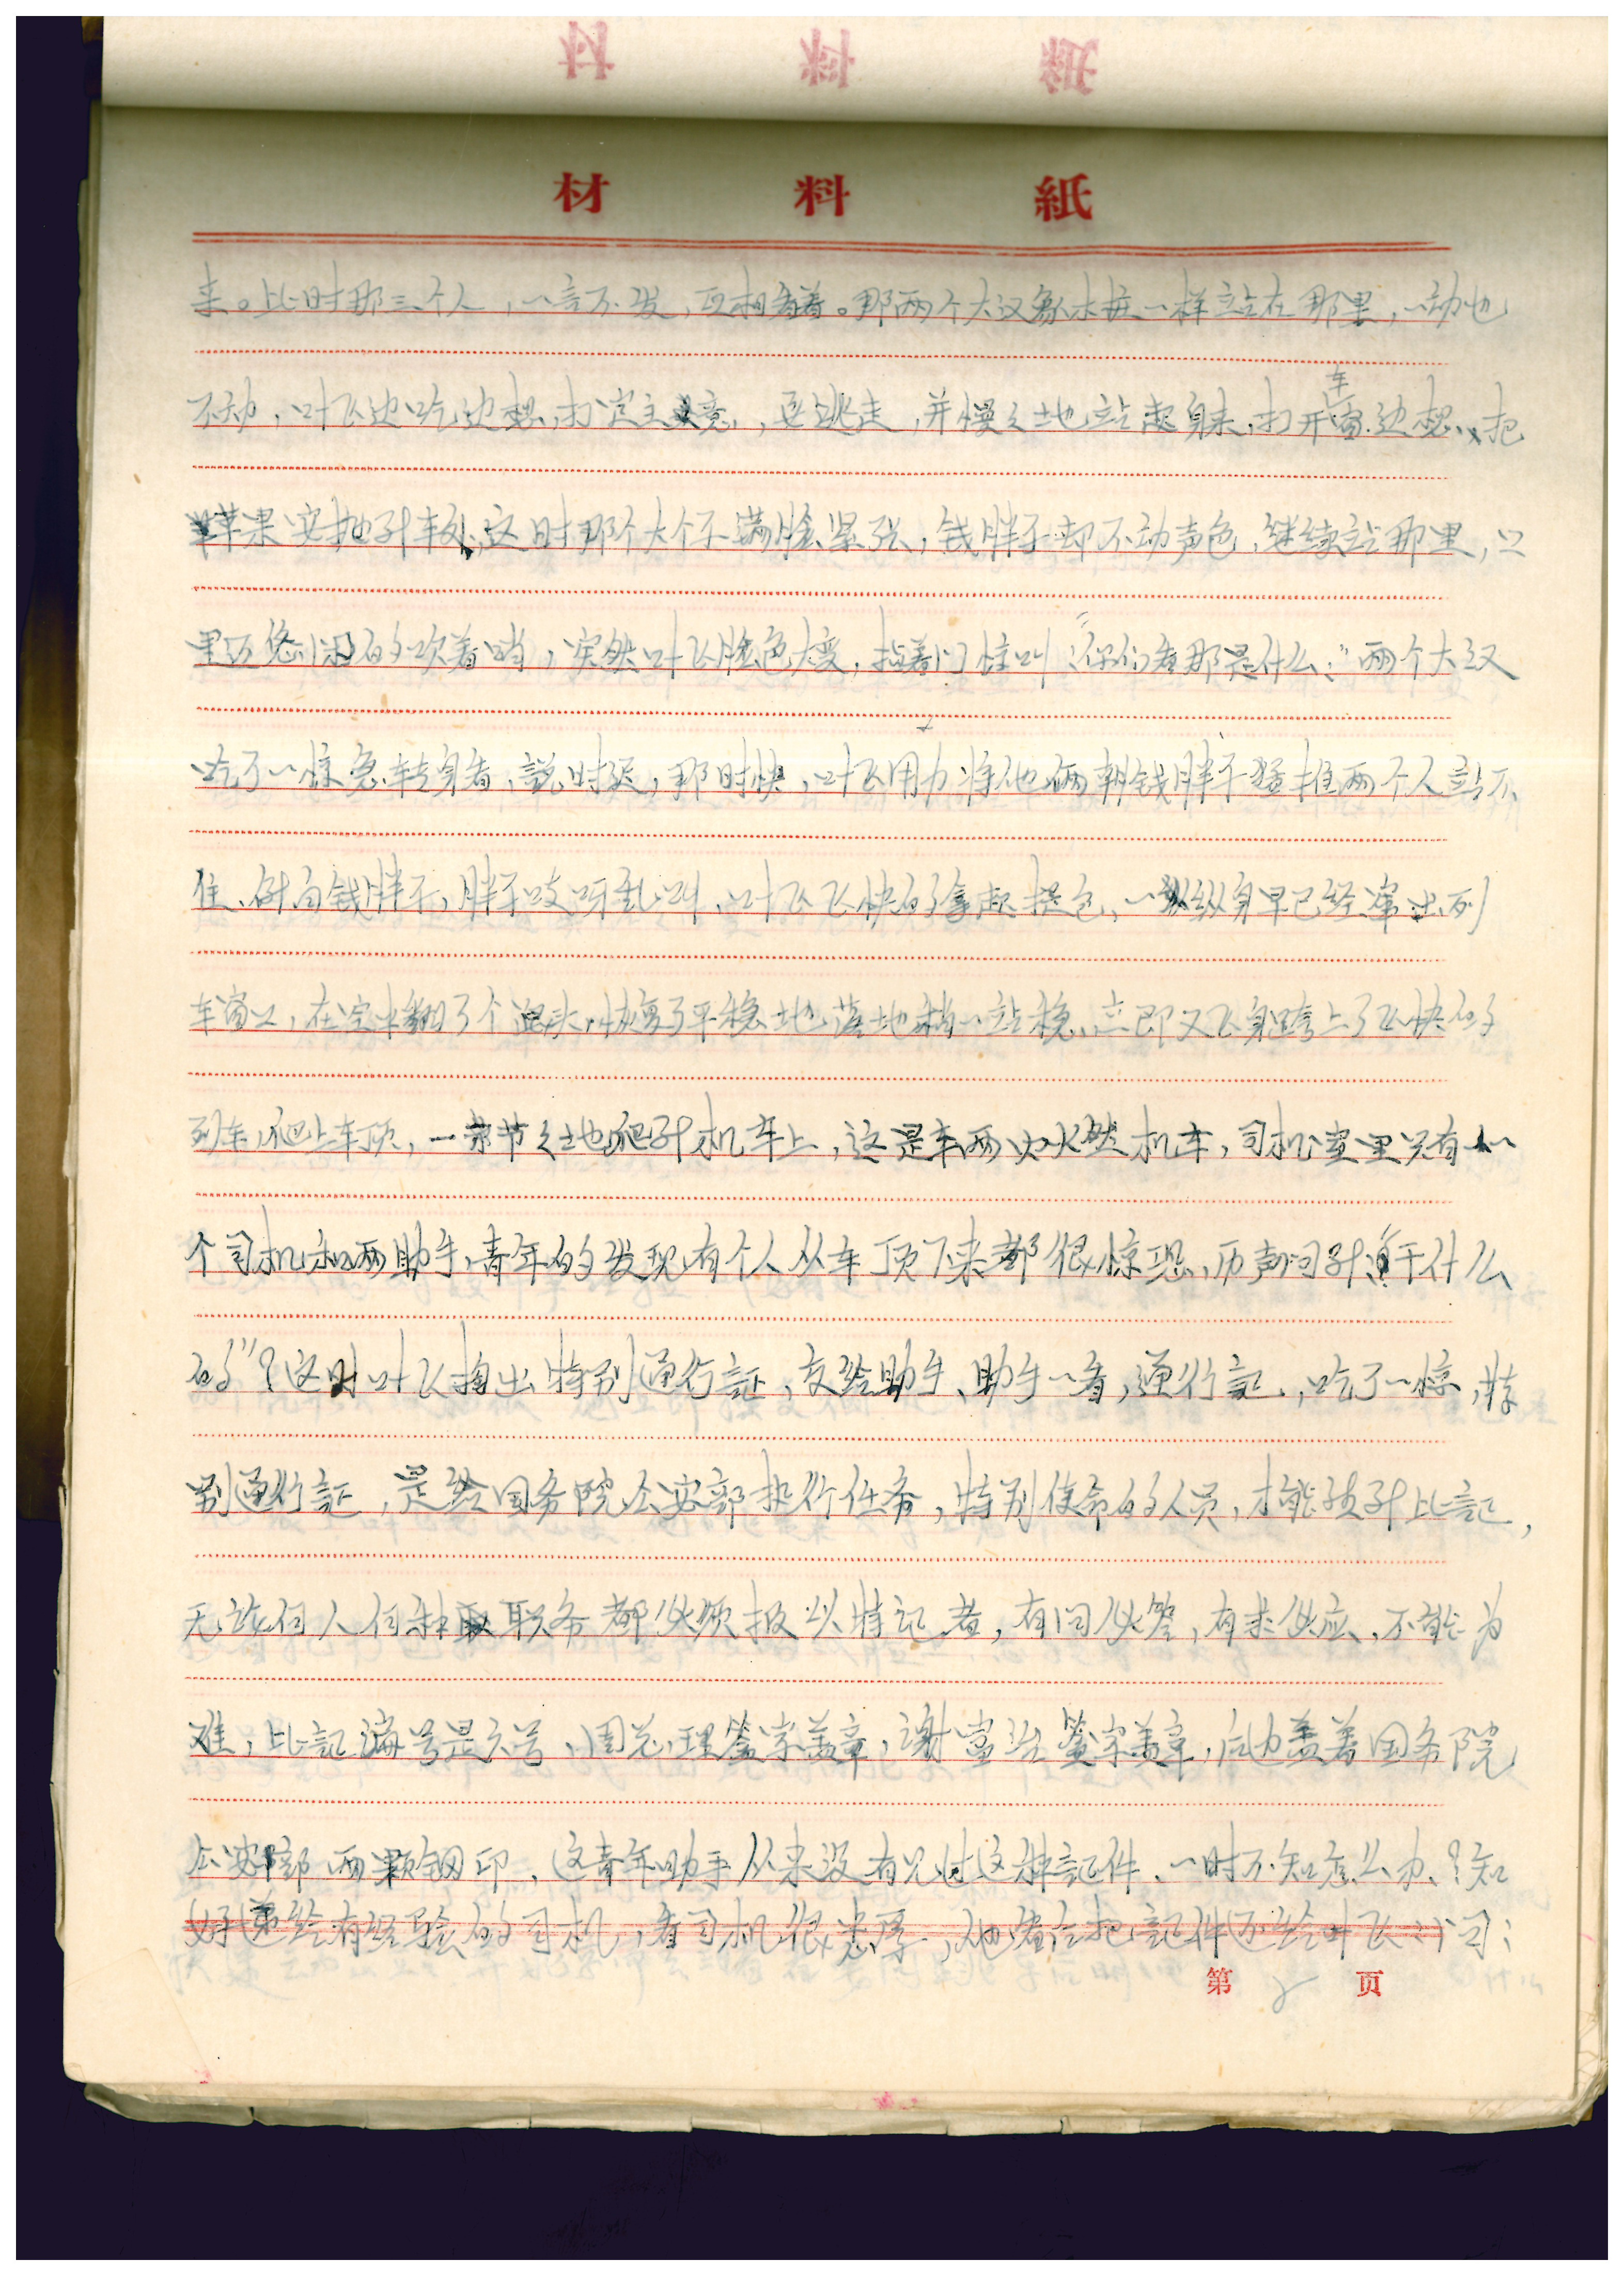 材料紙
来。此时那三个人,一言不发,互相看着。那两个大汉象木桩一样站在那里,一动也
不动,叶飞边吃边想,打定主意,要逃走,并慢々地站起身来,打开车窗边想、把
苹果安抛到车外,这时那个大个子满脸紧张,钱胖子却不动声色,继续站那里,口
里还悠闲的吹着哨,突然叶飞脸色大变,指着门惊叫:“你们看那是什么:”两个大汉
吃了一惊急转身看,説时迟,那时快,叶飞用力将他俩朝钱胖子猛推两个人站不
住、倒向钱胖子,胖子吱呀乱叫,叶飞飞快的拿起提包,一纵身早已经窜出列
车窗口,在空中翻了个滚,恢复了平稳地落地稍一站稳、立即又飞身跨上了飞快的
列车,爬上车顶,一节々地爬到机车上,这是车两内火燃机车,司机室里只有一
个司机和两助手,青年的发现有个人从车顶下来都很惊恐,历声问到:“干什么
的”?这时叶飞掏出特别通行証,交给助手、助手一看,通行証,吃了一惊,特
别通行証,是给国务院公安部执行任务,特别使命的人员,才能领到此証,
无论何人何种职务都必须报以特記者,有问必答,有求必应,不能为
难,此証编号是六号、周总理签字盖章,谢富治签字盖章,后力盖着国务院
公安部两颗钢印,这青年助手从来没有见过这种証件、一时不知怎么办、?知
好递给有经验的司机,看司机很忠厚,他看后把証件还给叶飞 司:
第 2 页